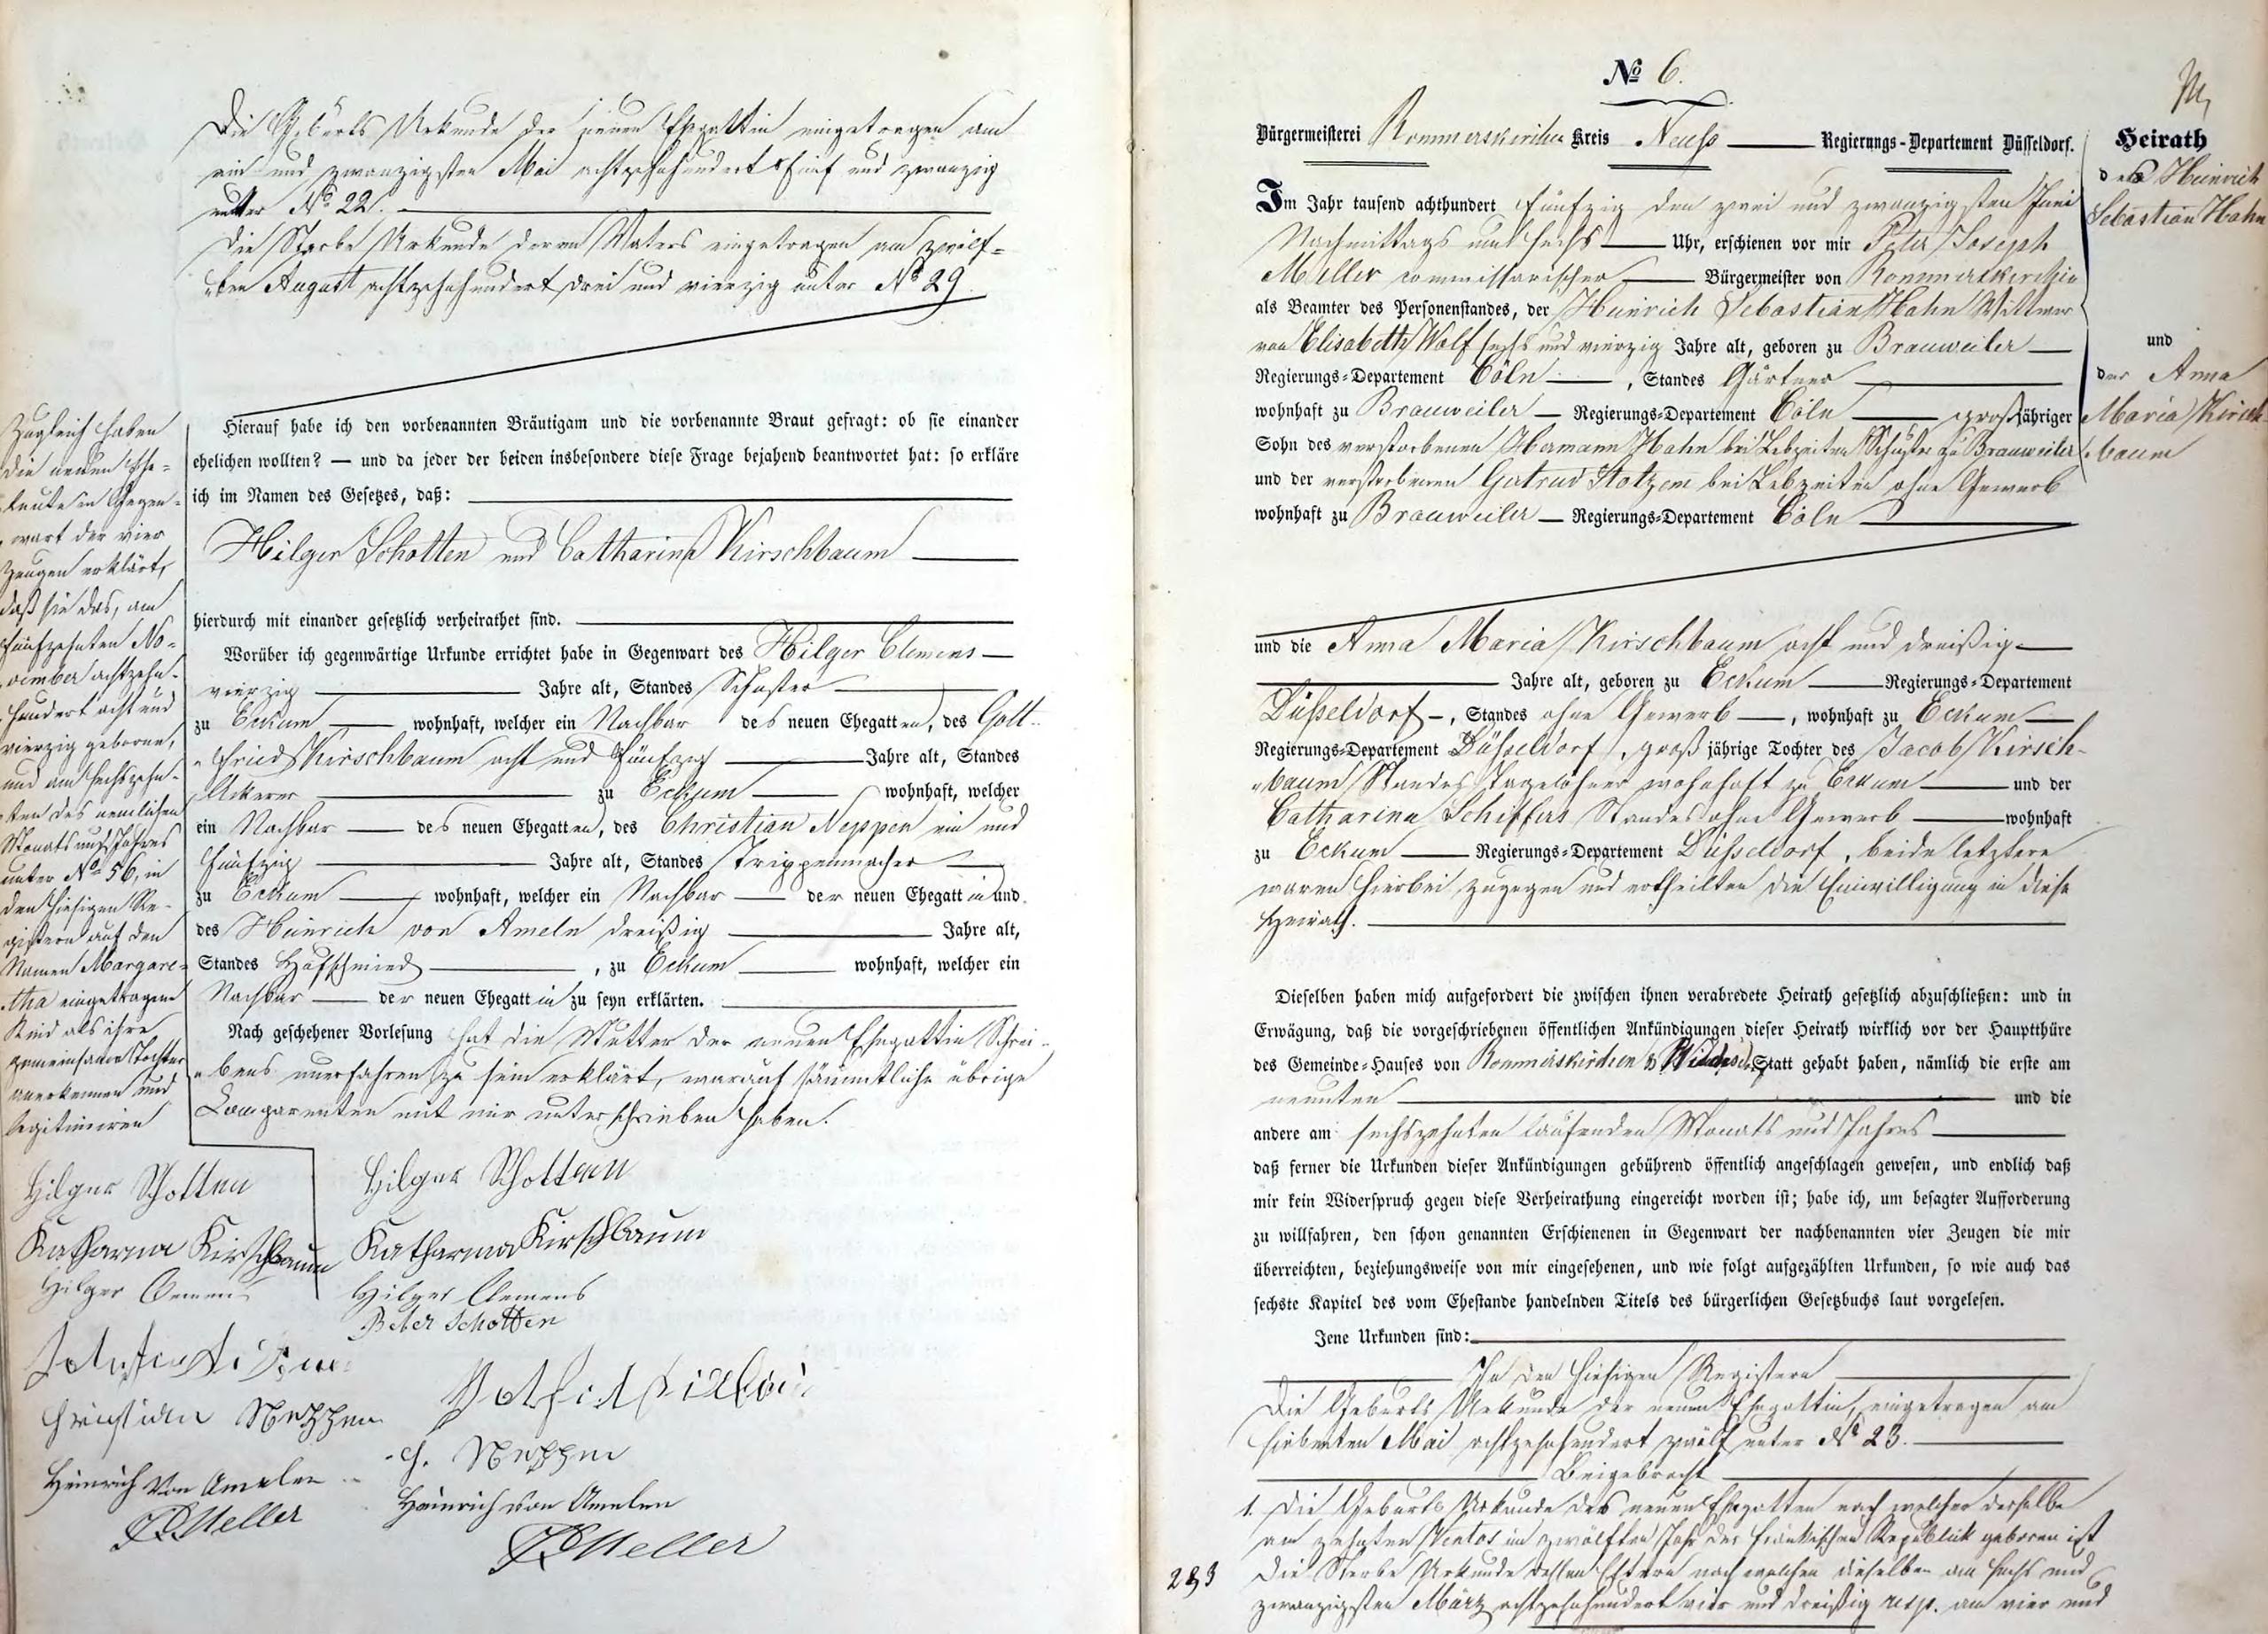 Die Geburts Urkunde der neuen Ehegattin eingetragen am
ein und zwanzigsten Mai achtzehnhundert fünf und zwanzig
unter No 22.
Die Sterbe Urkunde deren Vaters eingetragen am zwölf-
ten August achtzehnhundert drei und vierzig unter No 29.
Hierauf habe ich den vorbenannten Bräutigam und die vorbenannte Braut gefragt: ob sie einander
ehelichen wollten? — und da jeder der beiden insbesondere diese Frage bejahend beantwortet hat: so erkläre
ich im Namen des Gesetzes, daß:
Hilger Schotten und Catharina Kirschbaum
hierdurch mit einander gesetzlich verheirathet sind.
Worüber ich gegenwärtige Urkunde errichtet habe in Gegenwart des Hilger Clemens
vierzig Jahre alt, Standes Schuster
zu Eckum wohnhaft, welcher ein Nachbar des neuen Ehegatten, des Gott-
fried Kirschbaum acht und fünfzig Jahre alt, Standes
Ackerer zu Eckum wohnhaft, welcher
ein Nachbar des neuen Ehegatten, des Christian Neppen ein und
fünfzig Jahre alt, Standes Trippenmacher
zu Eckum wohnhaft, welcher ein Nachbar der neuen Ehegattin und
des Heinrich von Ameln dreißig Jahre alt,
Standes Hufschmied, zu Eckum wohnhaft, welcher ein
Nachbar der neuen Ehegattin zu seyn erklärten.
Nach geschehener Vorlesung hat die Mutter der neuen Ehegattin Schrei-
bens unerfahren zu sein erklärt, worauf sämmtliche übrige
Comparenten mit mir unterschrieben haben.
Zugleich haben
die neuen Ehe-
leute in Gegen-
wart der vier
Zeugen erklärt,
daß sie das, am
fünfzehnten No-
vember achtzehn-
hundert acht und
vierzig geborne,
und am sechszehn-
ten des nemlichen
Monats und Jahres
unter No 56, in
den hiesigen Re-
gistern auf den
Namen Margare-
tha eingetragene
Kind als ihre
gemeinsame Tochter
anerkennen und
legitimiren
Hilger Schotten
Katharina Kirschbaum
Hilger Clemens
Christian Neppen
Heinrich von Amelen
P J Meller
Hilger Schotten
Katharina Kirschbaum
Hilger Clemens
Peter Schotten
C. Neppen
Heinrich von Amelen
P J Meller
No 6.
Bürgermeisterei Rommerskirchen Kreis Neuss Regierungs-Departement Düsseldorf.
Im Jahr tausend achthundert fünfzig den zwei und zwanzigsten Juni
Nachmittags um sechs Uhr, erschienen vor mir Peter Joseph
Meller commissarischer Bürgermeister von Rommerskirchen
als Beamter des Personenstandes, der Heinrich Sebastian Hahn Wittwer
von Elisabeth Wolf sechs und vierzig Jahre alt, geboren zu Brauweiler
Regierungs-Departement Cöln, Standes Gärtner
wohnhaft zu Brauweiler Regierungs-Departement Cöln großjähriger
Sohn des verstorbenen Hermann Hahn bei Lebzeiten Schuster zu Brauweiler
und der verstorbenen Gertrud Stotzem bei Lebzeiten ohne Gewerb
wohnhaft zu Brauweiler Regierungs-Departement Cöln
und die Anna Maria Kirschbaum acht und dreißig
Jahre alt, geboren zu Eckum Regierungs-Departement
Düsseldorf, Standes ohne Gewerb, wohnhaft zu Eckum
Regierungs-Departement Düsseldorf, groß jährige Tochter des Jacob Kirsch-
baum Standes Tagelöhner wohnhaft zu Eckum und der
Catharina Schiffers Standes ohne Gewerb wohnhaft
zu Eckum Regierungs-Departement Düsseldorf, beide letztere
waren hierbei zugegen und ertheilten die Einwilligung in diese
Heirath.
Dieselben haben mich aufgefordert die zwischen ihnen verabredete Heirath gesetzlich abzuschließen: und in
Erwägung, daß die vorgeschriebenen öffentlichen Ankündigungen dieser Heirath wirklich vor der Hauptthüre
des Gemeinde-Hauses von Rommerskirchen Statt gehabt haben, nämlich die erste am
neunten und die
andere am sechszehnten laufenden Monats und Jahres
daß ferner die Urkunden dieser Ankündigungen gebührend öffentlich angeschlagen gewesen, und endlich daß
mir kein Widerspruch gegen diese Verheirathung eingereicht worden ist; habe ich, um besagter Aufforderung
zu willfahren, den schon genannten Erschienenen in Gegenwart der nachbenannten vier Zeugen die mir
überreichten, beziehungsweise von mir eingesehenen, und wie folgt aufgezählten Urkunden, so wie auch das
sechste Kapitel des vom Ehestande handelnden Titels des bürgerlichen Gesetzbuchs laut vorgelesen.
Jene Urkunden sind:
In den hiesigen Registern
Die Geburts Urkunde der neuen Ehegattin, eingetragen am
siebenten Mai achtzehnhundert zwölf unter No 23.
Beigebracht
1. Die Geburts Urkunde des neuen Ehegatten nach welcher derselbe
am zehnten Ventos im zwölften Jahr der fränkischen Republick geboren ist
2&3 Die Sterbe Urkunde dessen Eltern nach welchen dieselben am sechs und
zwanzigsten März achtzehnhundert vier und dreißig resp. am vier und
Heirath
des Heinrich
Sebastian Hahn
und
der Anna
Maria Kirsch-
baum